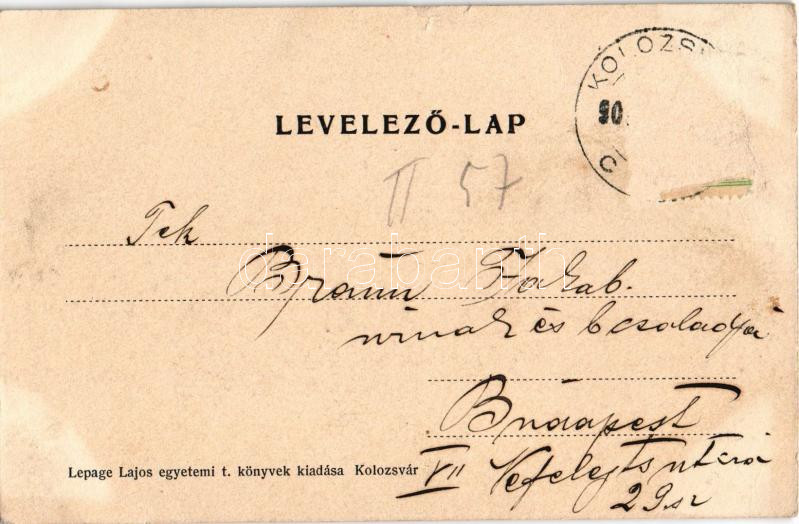 KOLOZS
90
LEVELEZŐ-LAP
II 57
Tek
Braun Jakab
urnak és b családja
Budapest
VII Nefelejts utcza
29 sz
Lepage Lajos egyetemi t. könyvek kiadása Kolozsvár
darabanth